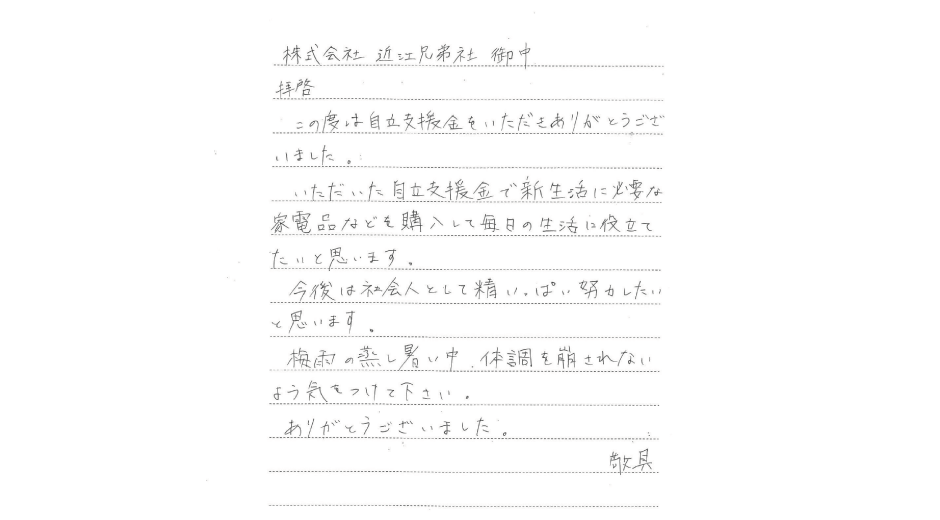 株式会社 近江兄弟社 御中
拝啓
この度は自立支援金をいただきありがとうござ
いました。
いただいた自立支援金で新生活に必要な
家電品などを購入して毎日の生活に役立て
たいと思います。
今後は社会人として精いっぱい努力したい
と思います。
梅雨の蒸し暑い中、体調を崩されない
よう気をつけて下さい。
ありがとうございました。
敬具